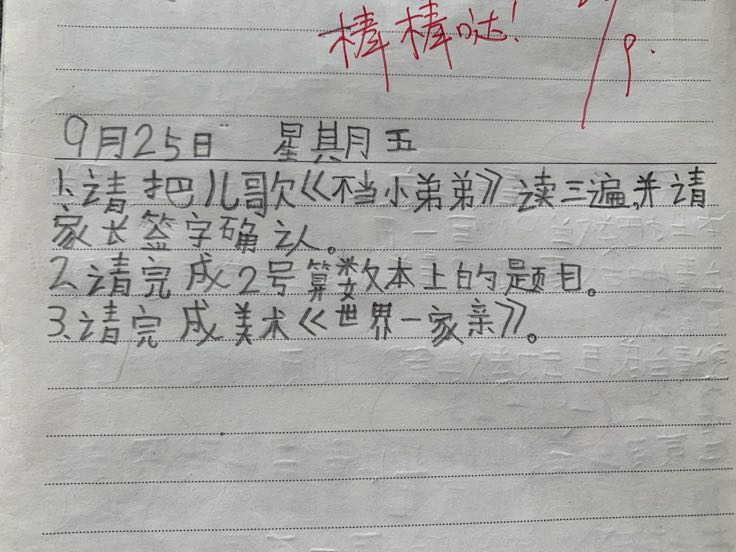 棒棒哒!
9月25日 星其月五
1.请把儿歌《不当小弟弟》读三遍,并请
家长签字确认。
2.请完成2号算数本上的题目。
3.请完成美术《世界一家亲》。